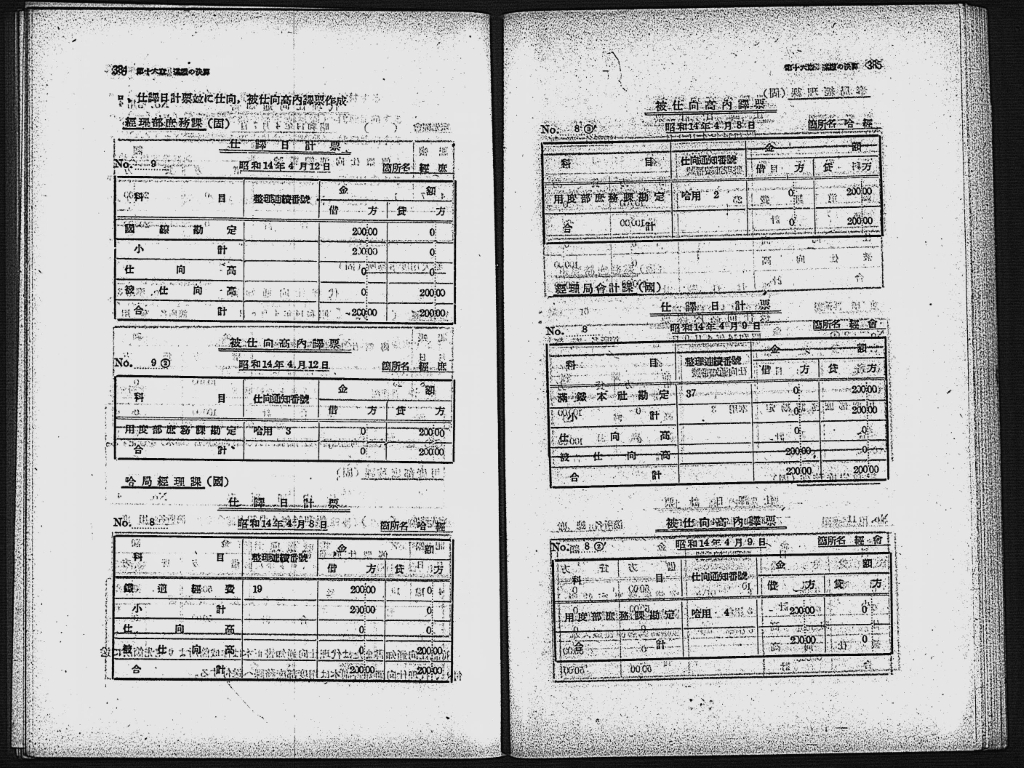 384 第十六章 遠隔の決算
ロ、仕譯日計票並に仕向、被仕向高內譯票作成
經理部庶務課(國)
仕譯日計票
No. 9 昭和14年4月12日 箇所名 經 庶
科目 整理連續番號 金額
借方 貸方
國線勘定 200.00 0
小計 200.00 0
仕向高 0 0
被仕向高 0 200.00
合計 200.00 200.00
被仕向高內譯票
No. 9 昭和14年4月12日 箇所名 經 庶
科目 仕向通知番號 金額
借方 貸方
用度部庶務課勘定 哈用 3 0 200.00
合計 0 200.00
哈局經理課(國)
仕譯日計票
No. 8 昭和14年4月8日 箇所名 哈 經
科目 整理連續番號 金額
借方 貸方
鐵道經費 19 200.00 0
小計 200.00 0
仕向高 0 0
被仕向高 0 200.00
合計 200.00 200.00
第十六章 遠隔の決算 385
被仕向高內譯票
No. 8 昭和14年4月8日 箇所名 哈 經
科目 仕向通知番號 金額
借方 貸方
用度部庶務課勘定 哈用 2 0 200.00
合計 0 200.00
經理局會計課(國)
仕譯日計票
No. 8 昭和14年4月9日 箇所名 經 會
科目 整理連續番號 金額
借方 貸方
滿鐵本社勘定 37 0 200.00
小計 0 200.00
仕向高 0 0
被仕向高 200.00 0
合計 200.00 200.00
被仕向高內譯票
No. 8 昭和14年4月9日 箇所名 經 會
科目 仕向通知番號 金額
借方 貸方
用度部庶務課勘定 哈用 4 200.00 0
合計 200.00 0